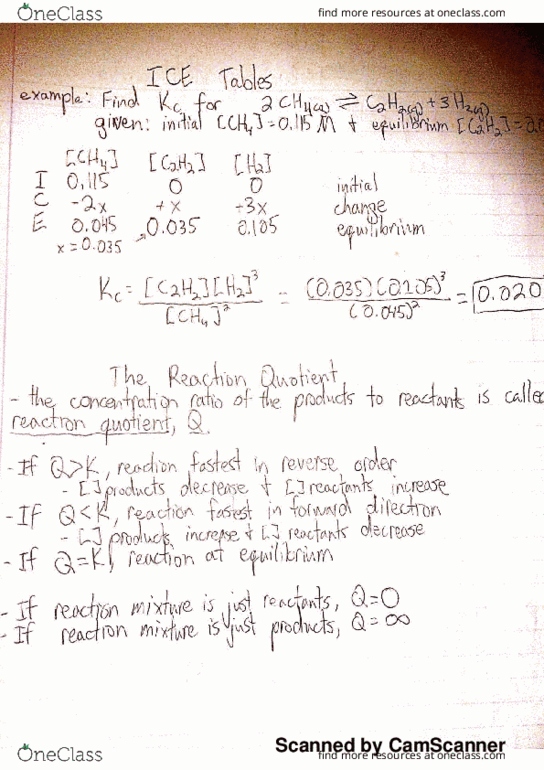 OneClass
find more resources at oneclass.com
ICE Tables
example: Find Kc for 2CH4(g) ⇌ C2H2(g) + 3H2(g)
given: initial [CH4] = 0.115 M + equilibrium [C2H2] =
[CH4] [C2H2] [H2]
I 0.115 0 0 initial
C -2x +x +3x change
E 0.045 0.035 0.105 equilibrium
x = 0.035
Kc = [C2H2][H2]^3 / [CH4]^2 = (0.035)(0.105)^3 / (0.045)^2 = 0.020
The Reaction Quotient
- the concentration ratio of the products to reactants is called
reaction quotient, Q.
- If Q>K, reaction fastest in reverse order
- [ ] products decrease + [ ] reactants increase
- If Q<K, reaction fastest in forward direction
- [ ] products increase + [ ] reactants decrease
- If Q=K, reaction at equilibrium
- If reaction mixture is just reactants, Q=0
- If reaction mixture is just products, Q=∞
Scanned by CamScanner
OneClass
find more resources at oneclass.com